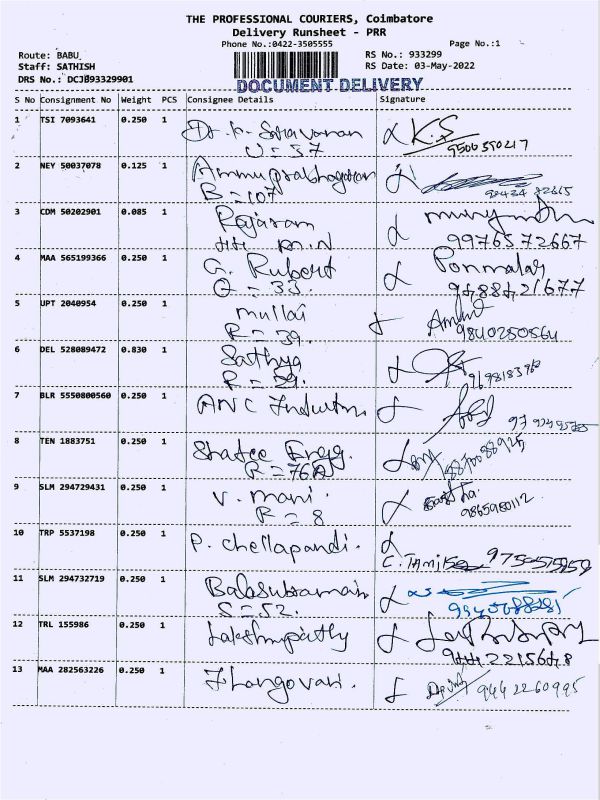 THE PROFESSIONAL COURIERS, Coimbatore
Delivery Runsheet - PRR
Phone No.:0422-3505555
Page No.:1
Route: BABU
RS No.: 933299
Staff: SATHISH
RS Date: 03-May-2022
DRS No.: DCJB93329901
DOCUMENT DELIVERY
S No Consignment No Weight PCS Consignee Details Signature
1 TSI 7093641 0.250 1 Dr. K. Saravanan K.S
U = 37 9500590217
2 NEY 50037078 0.125 1 Ammu prabhagaran
B = 107
3 CDM 50202901 0.085 1 Rajaram
9976572667
4 MAA 565199366 0.250 1 G. Rubert Ponmalar
O = 33. 9488421677
5 UPT 2040954 0.250 1 mullai
R = 39. 9840250564
6 DEL 528089472 0.830 1 Sathya
R = 39.
7 BLR 5550800560 0.250 1 ANC
8 TEN 1883751 0.250 1 Engg.
R = 76A
9 SLM 294729431 0.250 1 V. mani.
R = 8 9865980112
10 TRP 5537198 0.250 1 P. chellapandi.
C. TAMIL
11 SLM 294732719 0.250 1 Balasubramain
S = 52.
12 TRL 155986 0.250 1 Lakshmipathy
9442215648
13 MAA 282563226 0.250 1 9442260995